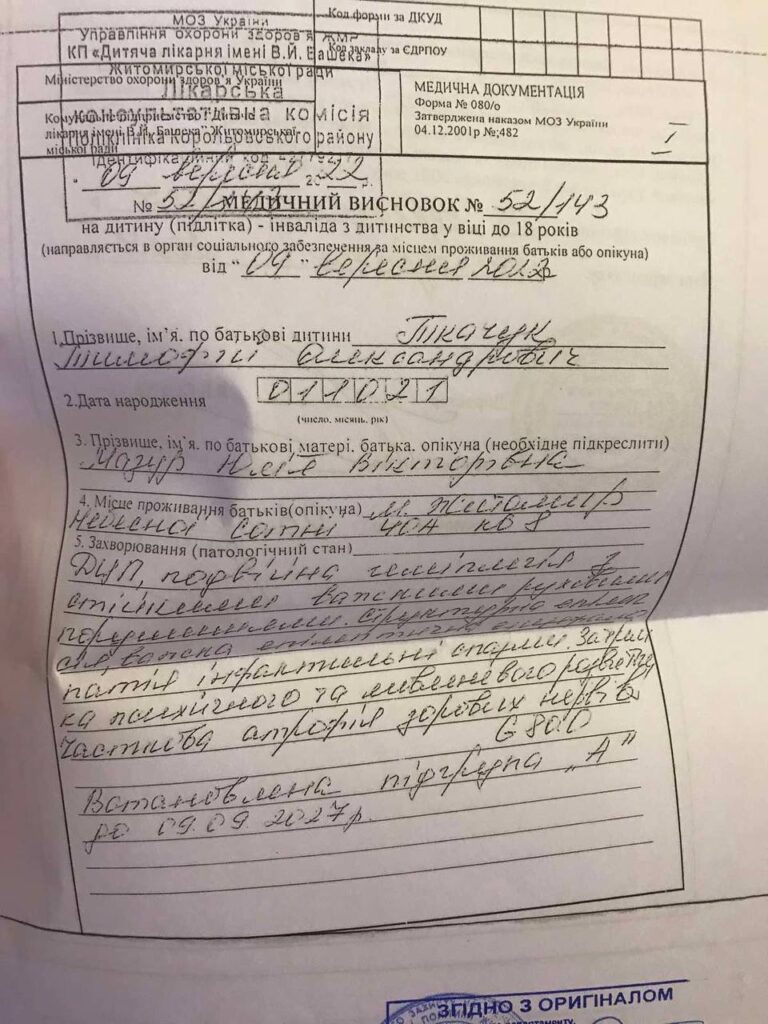 МОЗ України
Управління охорони здоров'я ЖМР
КП «Дитяча лікарня імені В.Й. Башека»
Житомирської міської ради
Лікарська
консультативна комісія
Поліклініка Корольовського району
Ідентифікаційний код
Код форми за ДКУД
Код закладу за ЄДРПОУ
Міністерство охорони здоров'я України
лікарня імені В.Й. Башека" Житомирської
міської ради
МЕДИЧНА ДОКУМЕНТАЦІЯ
Форма № 080/о
Затверджена наказом МОЗ України
04.12.2001р №;482
I
09 вересня 2022 р.
№ 52/143
МЕДИЧНИЙ ВИСНОВОК № 52/143
на дитину (підлітка) - інваліда з дитинства у віці до 18 років
(направляється в орган соціального забезпечення за місцем проживання батьків або опікуна)
від "09" вересня
1.Прізвище, ім'я. по батькові дитини Ткачук
Тимофій Олександрович
2.Дата народження 011021
(число. місяць. рік)
3. Прізвище, ім'я. по батькові матері. батька. опікуна (необхідне підкреслити)
Мазур Юлія Вікторівна
4. Місце проживання батьків(опікуна) м. Житомир
Небесної Сотні 40А кв 8
5. Захворювання (патологічний стан)
ДЦП, подвійна геміплегія з
стійкими важкими руховими
порушеннями. Структурна епілеп
сія, важка епілептична енцефало
патія інфантильні спазми. Затрим
ка психічного та мовленевого розвитку
Часткова атрофія зорових нервів
G 80.0
Встановлена підгрупа „А"
до 09.09.2027р.
ЗГІДНО З ОРИГІНАЛОМ